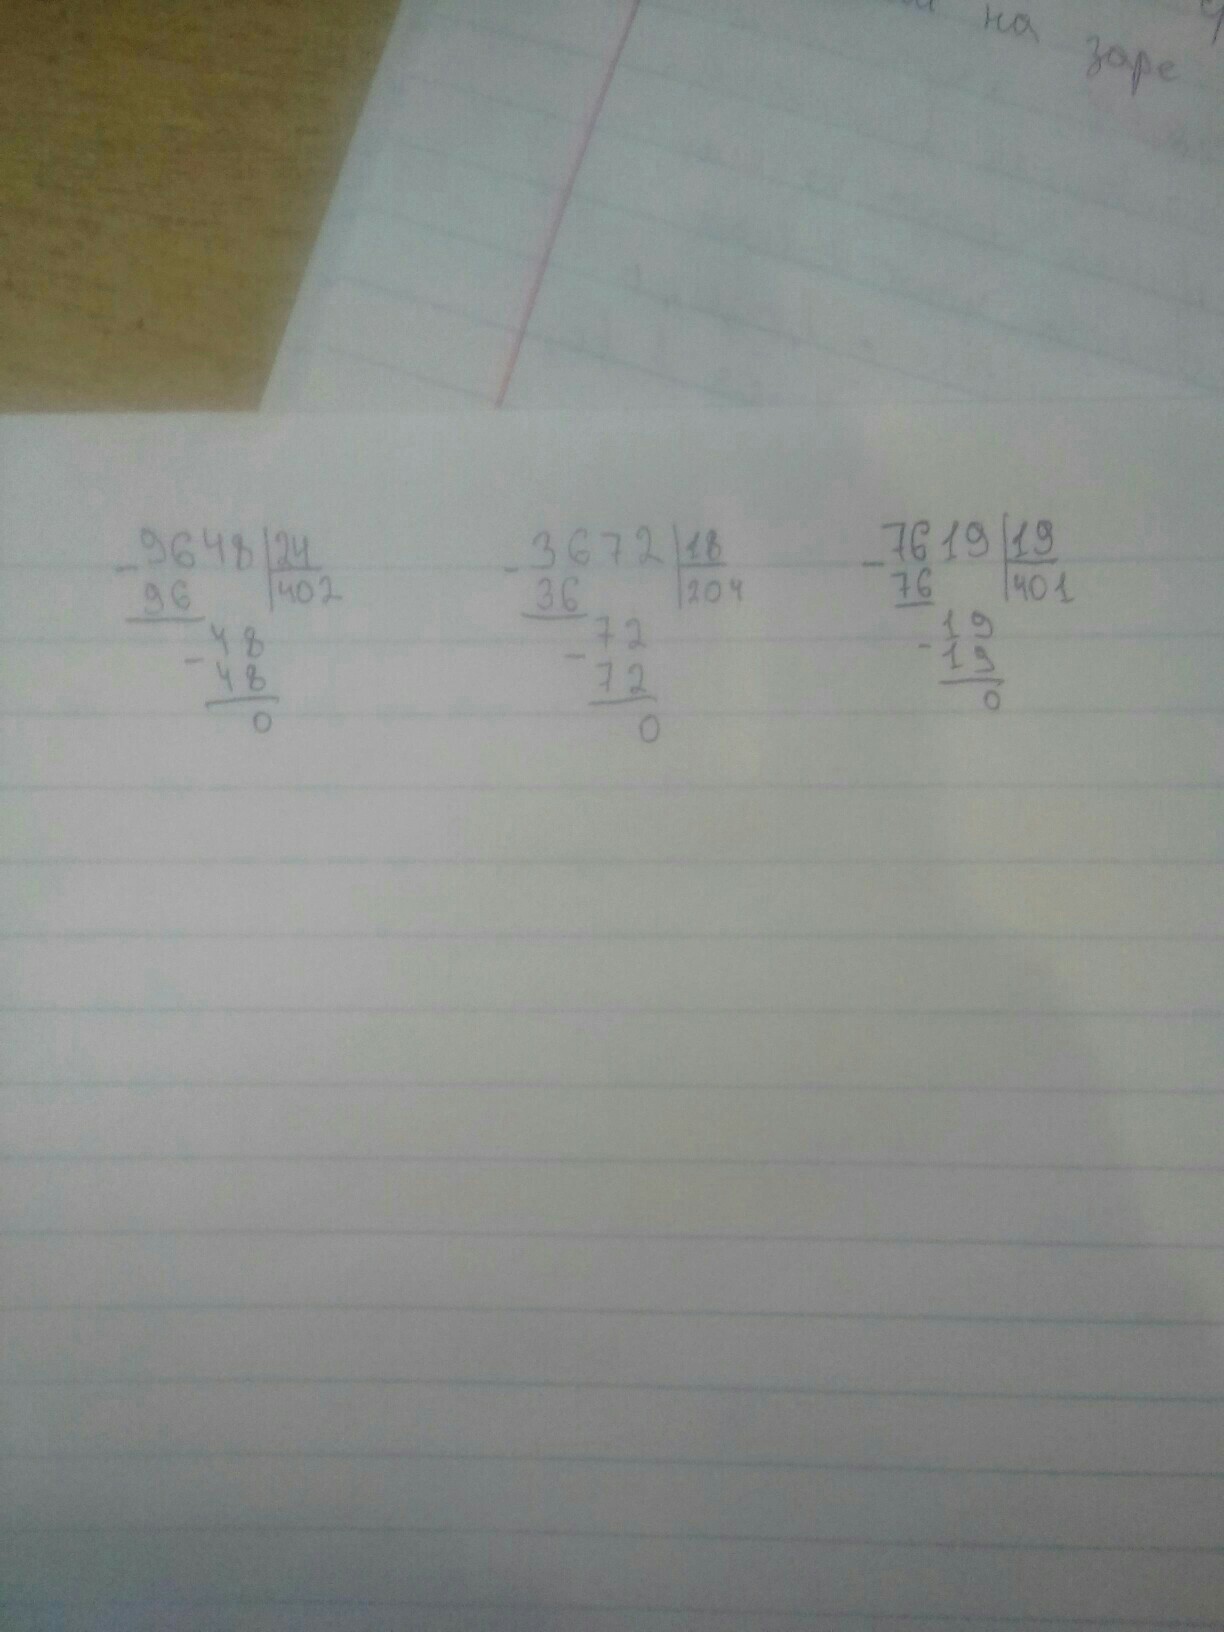 на заре
-9648|24 -3672|18 -7619|19
96 |402 36 |204 76 |401
-48 -72 -19
48 72 19
0 0 0